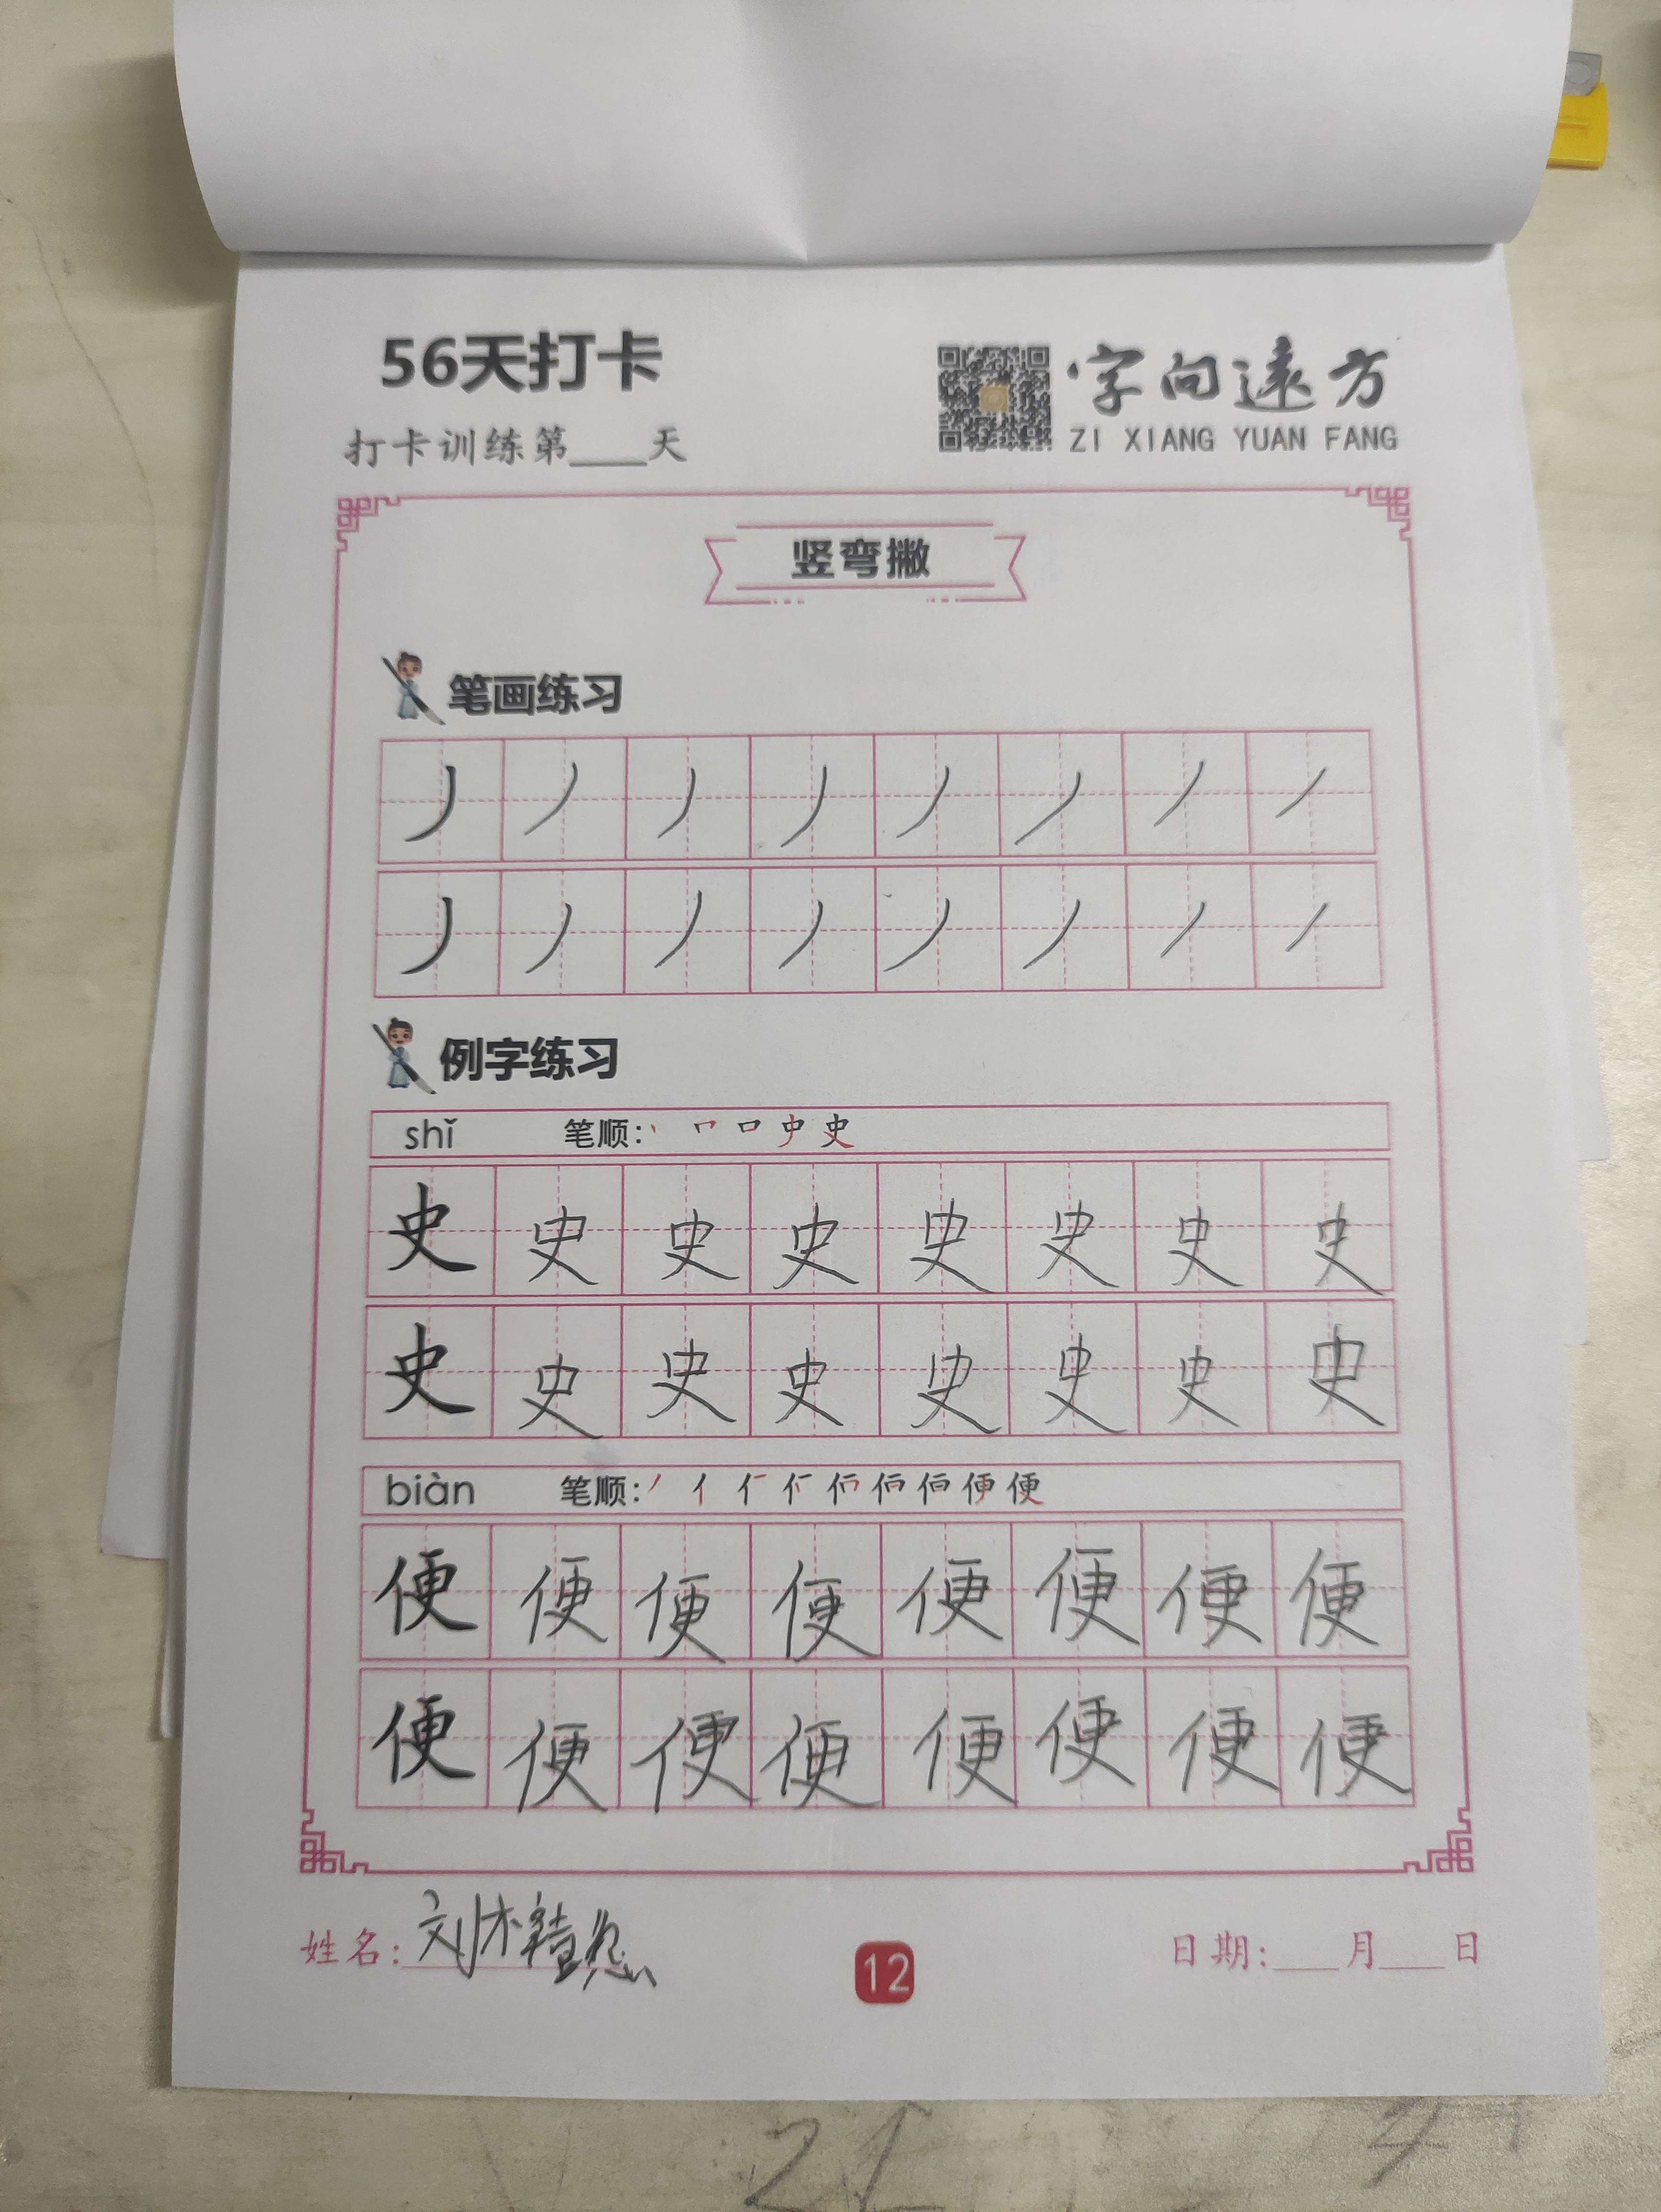 56天打卡
打卡训练第___天
字向远方
ZI XIANG YUAN FANG
竖弯撇
笔画练习
丿 丿 丿 丿 丿 丿 丿 丿
丿 丿 丿 丿 丿 丿 丿 丿
例字练习
shǐ 笔顺:
史 史 史 史 史 史 史 史
史 史 史 史 史 史 史 史
biàn 笔顺:
便 便 便 便 便 便 便 便
便 便 便 便 便 便 便 便
姓名:刘
12
日期:___月___日